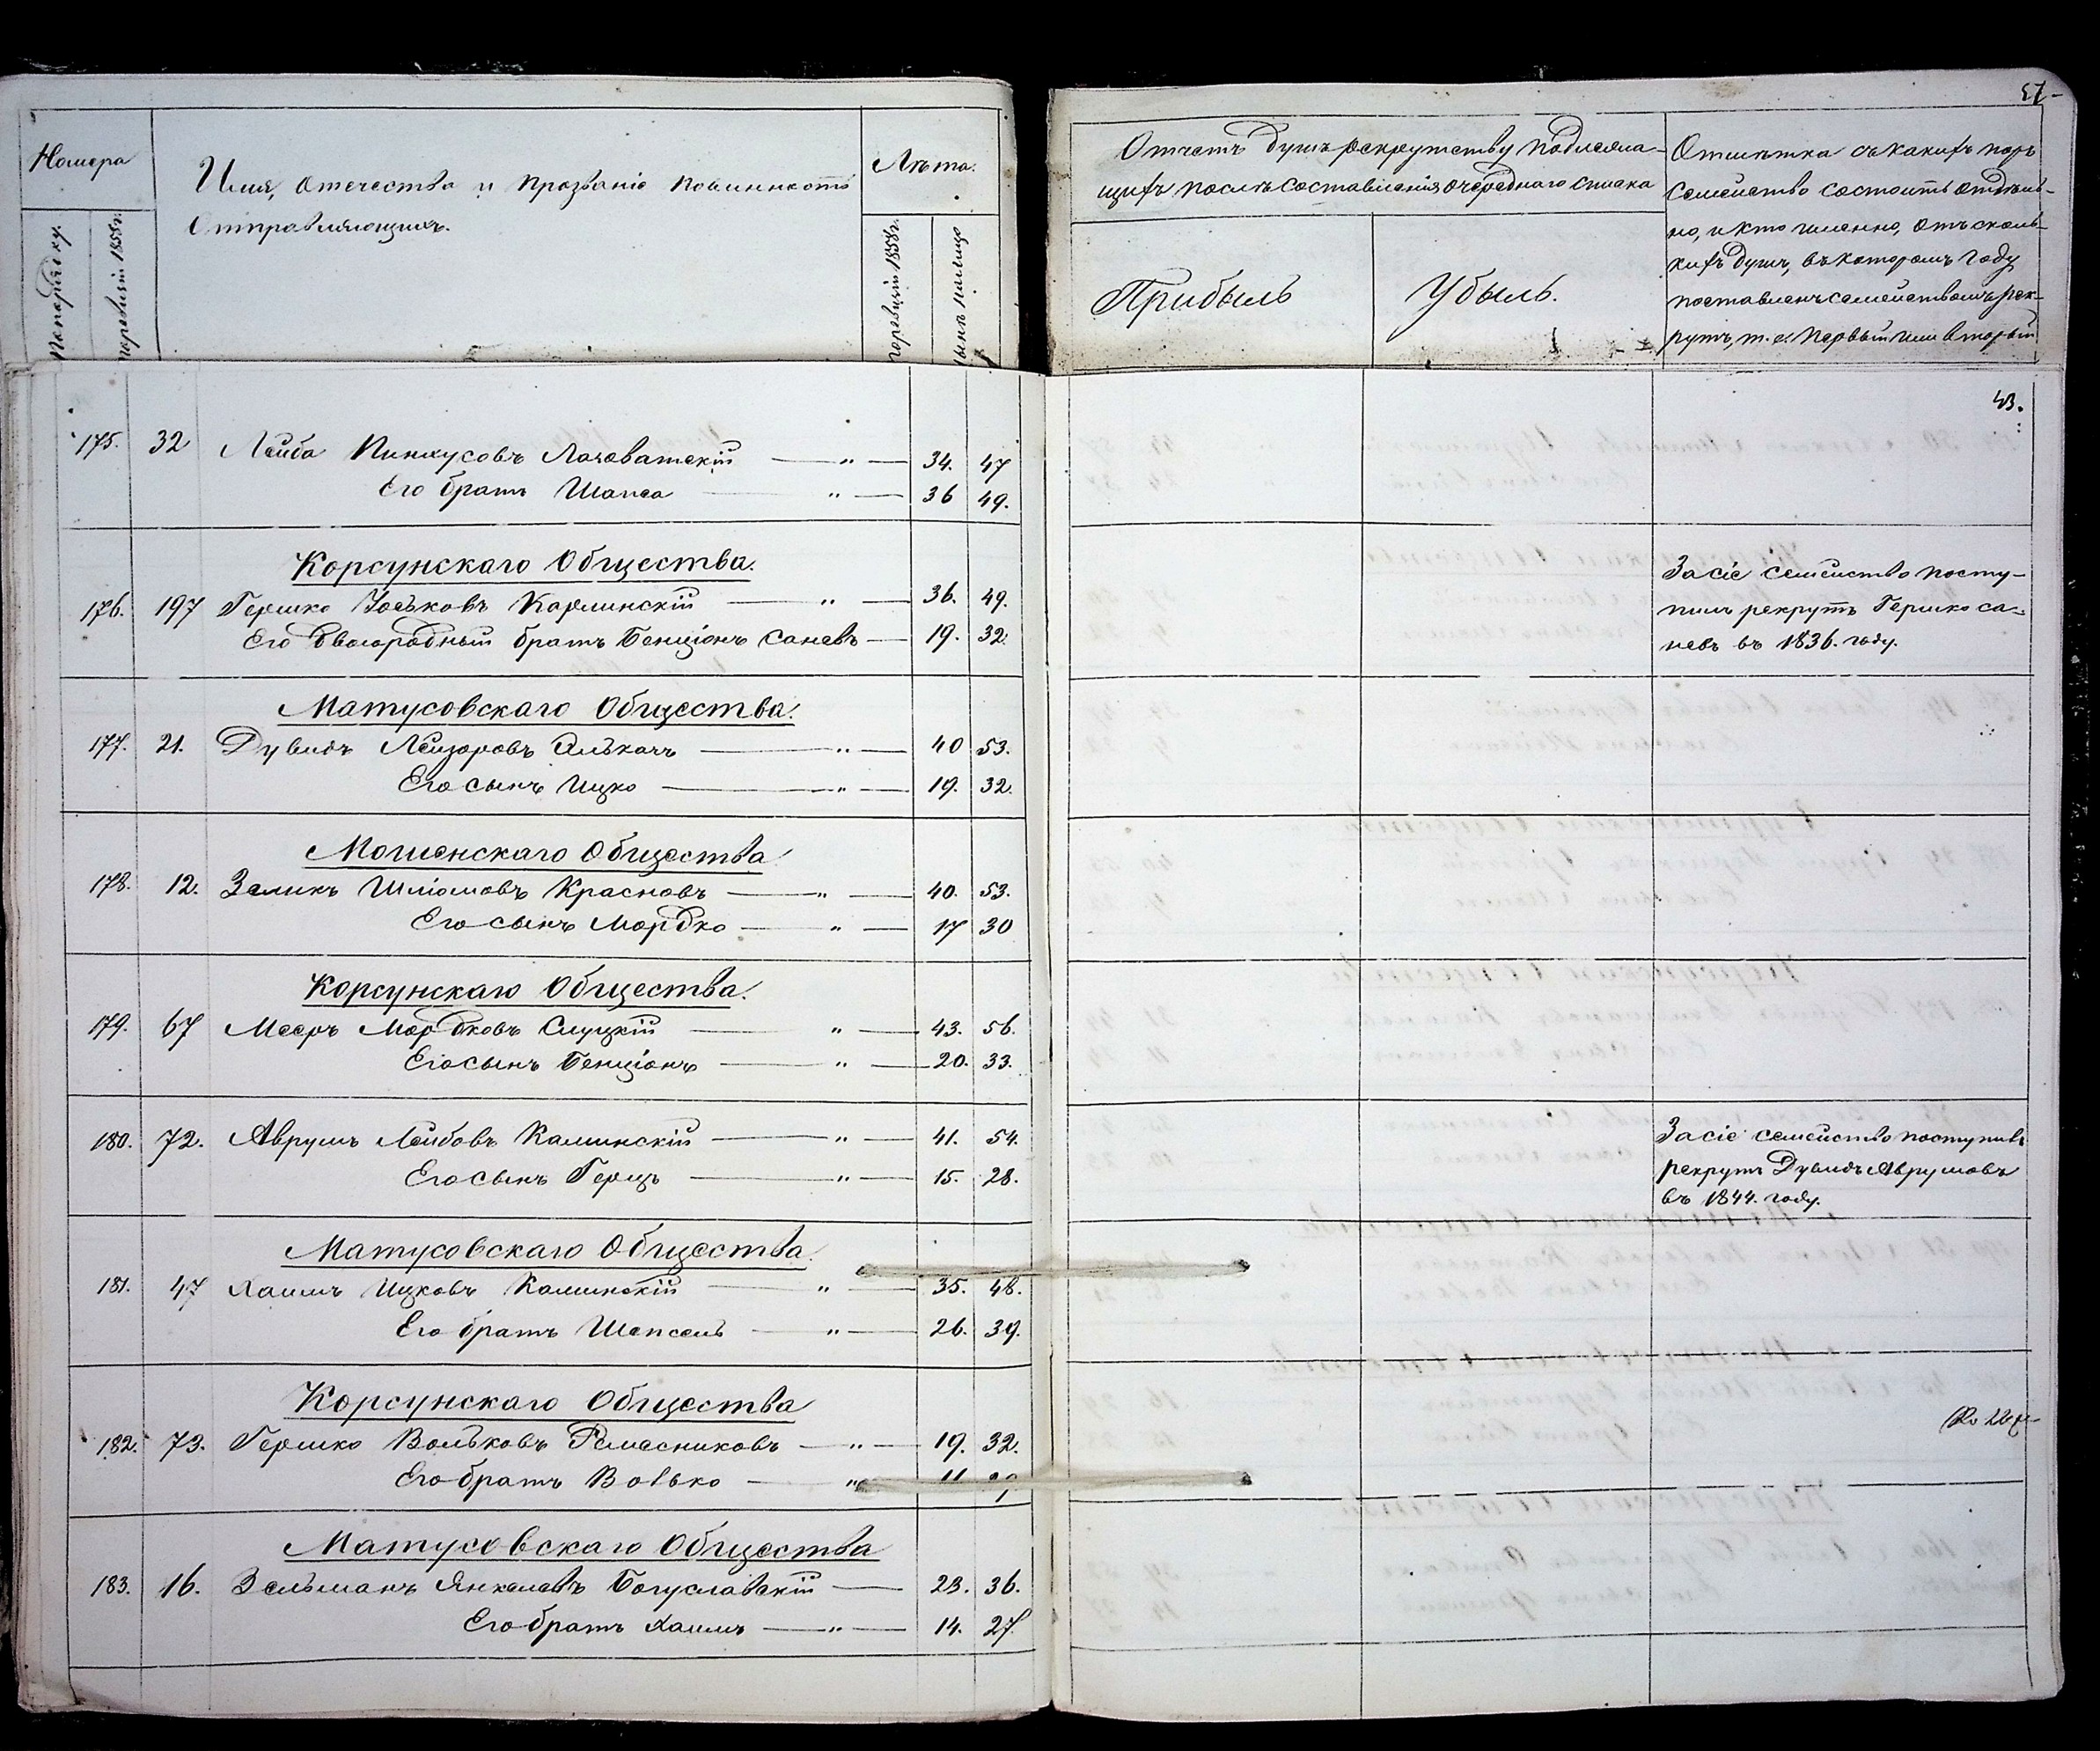 57
Номера
Имя, отечество и прозваніе повинность
отправляющихъ.
Лѣта.
По порядку.
По ревизіи 1858 г.
По ревизіи 1858 г.
Отчетъ душъ рекрутству подлежа-
щихъ послѣ составленія очереднаго списка
Прибыль
Убыль.
Отмѣтка съ какихъ поръ
семейство состоитъ отдѣль-
но, и кто именно, отъ сколь-
кихъ душъ, въ которомъ году
поставленъ семействомъ рек-
рутъ, т. е. первый или вторый
43.
175. 32 Лейба Пинкусовъ — " — 34. 47
Его братъ Шапса — " — 36 49.
Корсунскаго Общества.
176. 197 Гершко Іоськовъ Карлинскій — " — 36. 49.
Его двоюродный братъ Бенціонъ Саневъ — 19. 32.
За сіе семейство посту-
пилъ рекрутъ Гершко Са-
невъ въ 1836. году.
Матусовскаго Общества.
177. 21. Дувидъ Лейзоровъ — " — 40 53.
Его сынъ Ицко — " — 19. 32.
Мошенскаго Общества
178. 12. Зеликъ Шліомовъ Красновъ — " — 40. 53.
Его сынъ Мордко — " — 17 30
Корсунскаго Общества.
179. 67 Мееръ Мордковъ Слуцкій — " — 43. 56.
Его сынъ Бенціонъ — " — 20. 33.
180. 72. Аврумъ Лейбовъ Каминскій — " — 41. 54.
Его сынъ Герцъ — " — 15. 28.
За сіе семейство поступилъ
рекрутъ Дувидъ Аврумовъ
въ 1844. году.
Матусовскаго Общества.
181. 47 Хаимъ Ицковъ Каминскій — " — 35. 48.
Его братъ Шепсель — " — 26. 39.
Корсунскаго Общества
182. 73. Гершко Вольковъ Ремесниковъ — " — 19. 32.
Его братъ Волько — "
Матусовскаго Общества
183. 16. Зельманъ Янкелевъ Богуславскій — 23. 36.
Его братъ Хаимъ — " — 14. 27.